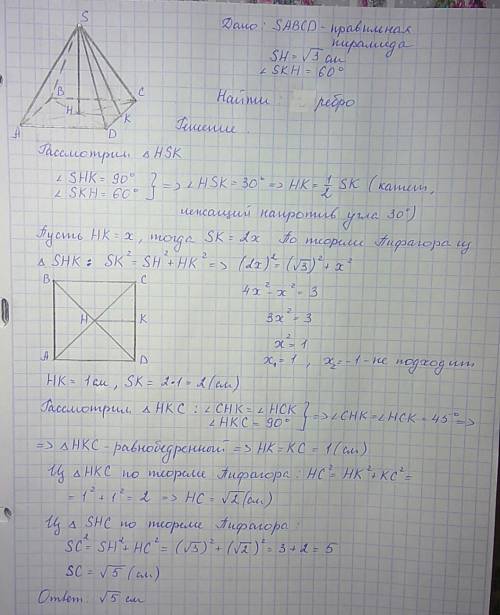 S
Дано: SABCD - правильная
пирамида
SH = √3 см
∠SKH = 60°
B
C
H
K
A
D
Найти: ребро
Решение.
Рассмотрим △HSK
∠SHK = 90°
∠SKH = 60° } => ∠HSK = 30° => HK = 1/2 SK (катет,
лежащий напротив угла 30°)
Пусть HK = x, тогда SK = 2x По теореме Пифагора из
△ SHK: SK² = SH² + HK² => (2x)² = (√3)² + x²
B
C
4x² - x² = 3
H
K
3x² = 3
x² = 1
A
D
x₁ = 1, x₂ = -1 - не подходит
HK = 1 см, SK = 2·1 = 2 (см)
Рассмотрим △HKC: ∠CHK = ∠HCK
∠HKC = 90° } => ∠CHK = ∠HCK = 45° =>
=> △HKC - равнобедренный => HK = KC = 1 (см)
Из △HKC по теореме Пифагора: HC² = HK² + KC² =
= 1² + 1² = 2 => HC = √2 (см)
Из △ SHC по теореме Пифагора:
SC² = SH² + HC² = (√3)² + (√2)² = 3 + 2 = 5
SC = √5 (см)
Ответ: √5 см